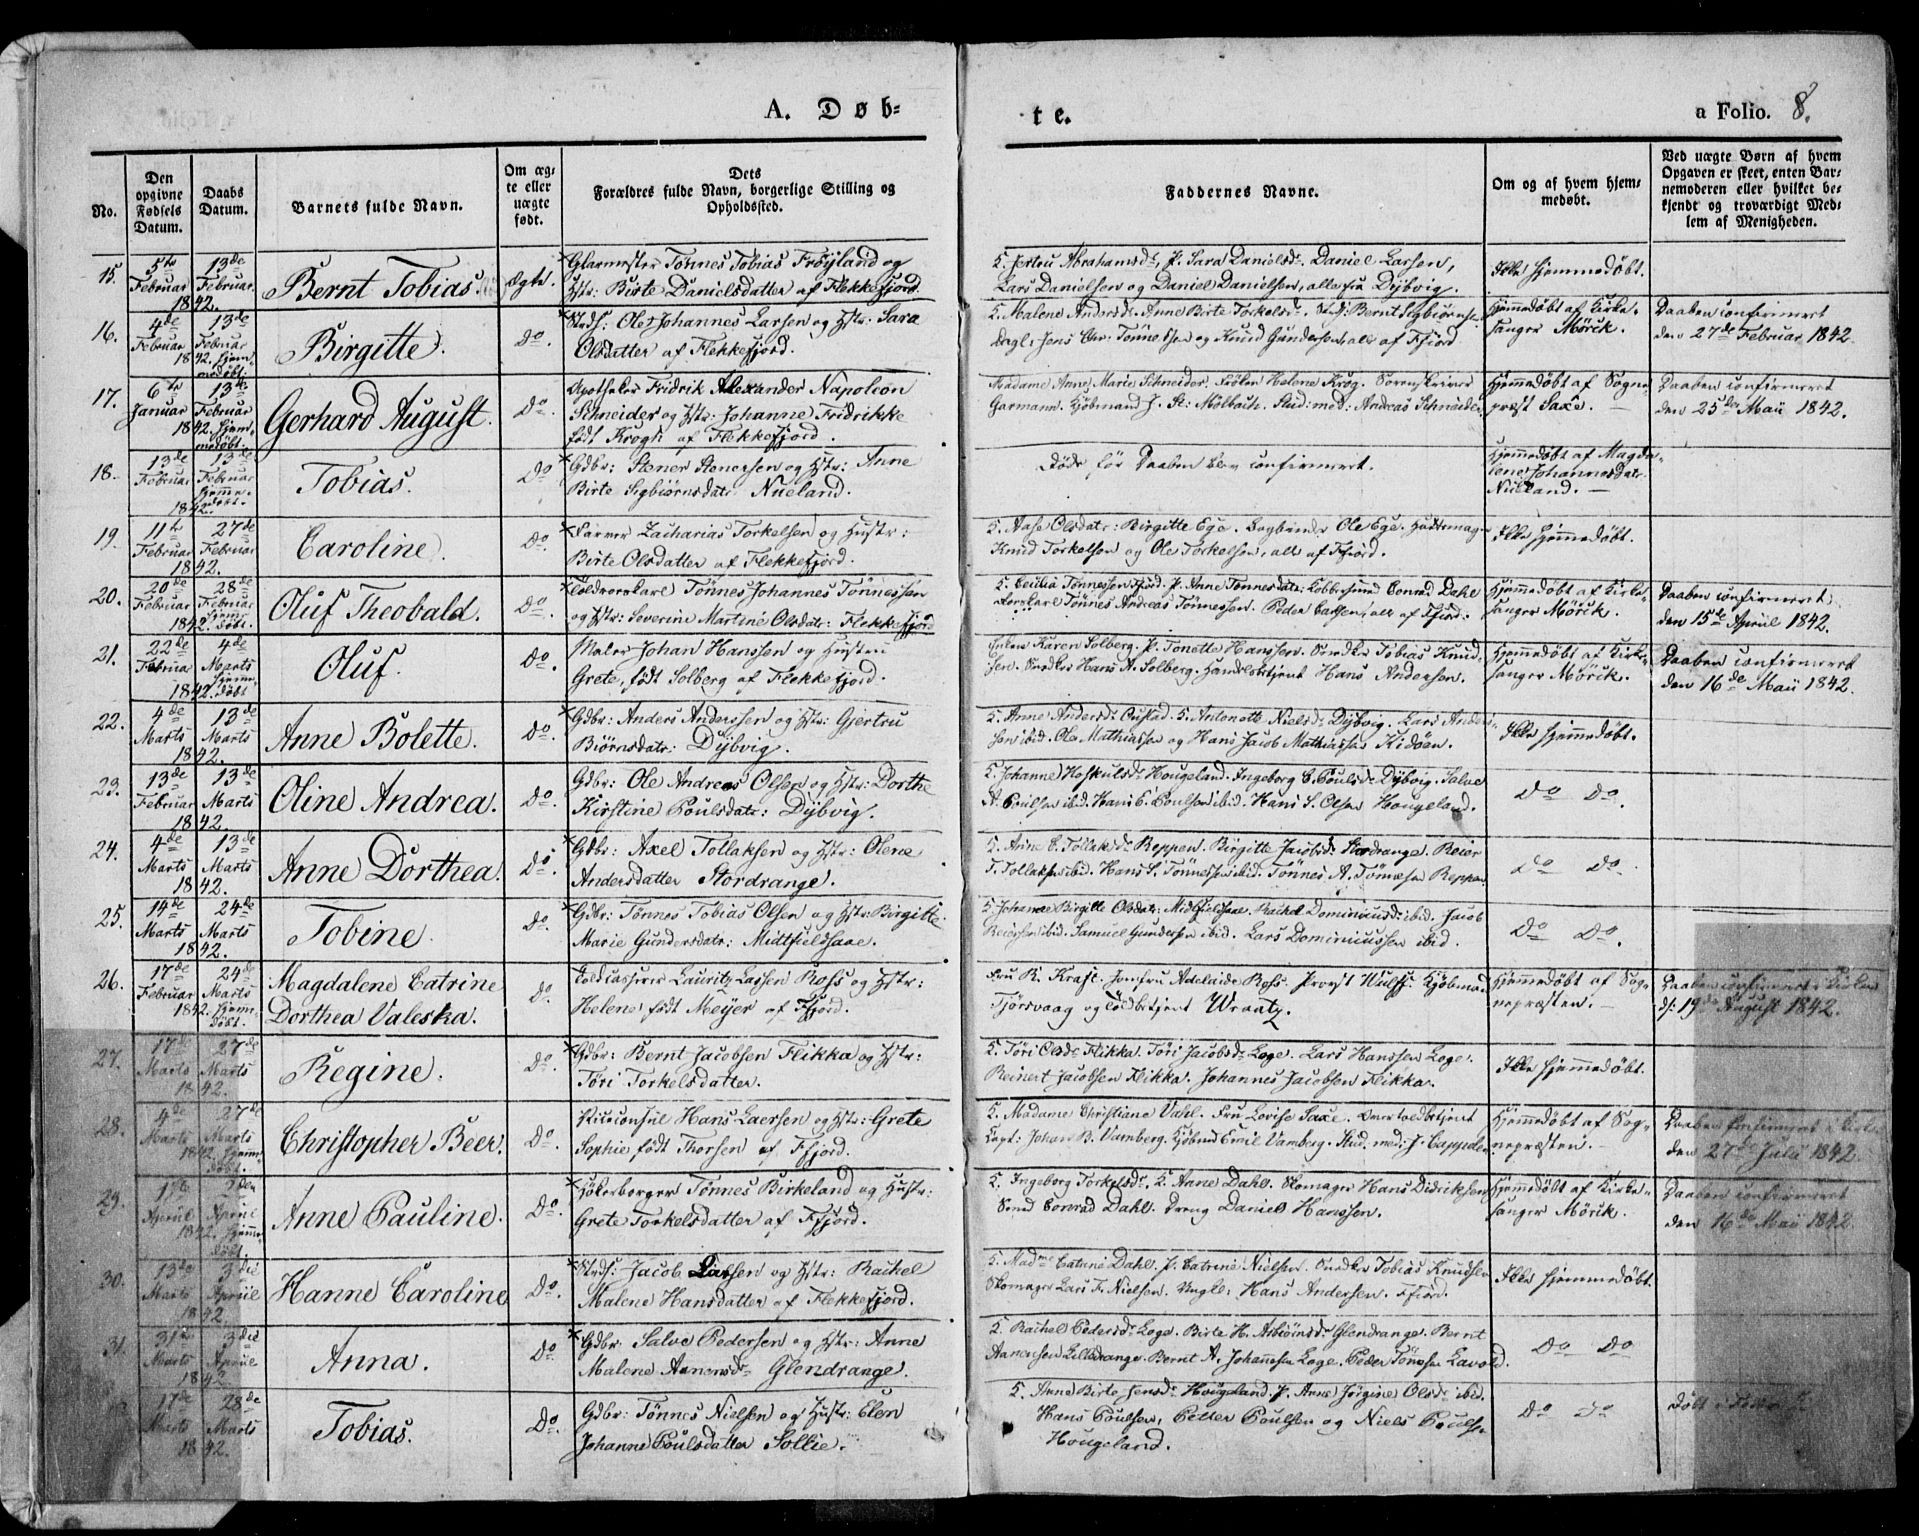 A. Døb-
te.
a Folio. 8.
No.
Den opgivne Fødsels Datum.
Daabs Datum.
Barnets fulde Navn.
Om ægte eller uægte født.
Dets Forældres fulde Navn, borgerlige Stilling og Opholdssted.
Faddernes Navne.
Om og af hvem hjemmedøbt.
Ved uægte Børn af hvem Opgaven er skeet, enten Barnemoderen eller hvilket bekjendt og troværdigt Medlem af Menigheden.
15. 5te Februar 1842. 13de Februar.
Bernt Tobias. Ægte.
Glarmester Tønnes Tobias Frøyland og
Hstr: Birte Danielsdatter af Flekkefjord.
Abrahamsdr, P. Sara Danielsdr. Daniel Larsen,
Lars Danielsen og Daniel Danielsen, alle fra Dÿbvig.
Ikke hjemmedøbt.
16. 4de Februar 1842. 13de Februar hjemmedøbt.
Birgitte. Do.
Strdf: Ole Johannes Larsen og Hstr. Sara
Olsdatter af Flekkefjord.
K. Malene Andersdr. Anne Birte Torkelsdr. Bernt Sigbiørnsen
Dagl: Jens Chr. Tønnessen og Knud Gundersen, alle af Ffjord
Hjemmedøbt af Kirkesanger Mörick.
Daaben confirmeret
den 27de Februar 1842.
17. 6te Januar 1842. 13de Februar hjemmedøbt.
Gerhard August. Do.
Apotheker Fridrik Alexander Napoleon
Schneider og Hstr. Johanne Fridrikke
født Krogh af Flekkefjord.
Madame Anne Marie Schneider. Frøken Helene Krog. Sorenskriver
Garmann. Kjøbmand J. St: Mölbach. Stud: med: Andreas Schneider
Hjemmedøbt af Sognepræst Saxe.
Daaben confirmeret
den 25de Maii 1842.
18. 13de Februar 1842. 13de Februar hjemmedøbt.
Tobias. Do
Gdbr: Stener Stenersen og Hstr: Anne
Birte Sigbiørnsdatr Nueland.
Døde før Daaben blev confirmeret.
Hjemmedøbt af Magdalene Johannesdatr Nueland.
19. 11te Februar 1842. 27de Februar
Caroline. Do.
Farver Zacharias Torkelsen og Hustr:
Birte Olsdatter af Flekkefjord.
K. Aase Olsdatr: Birgitte Ege. Bogbinder Ole Ege. Hattemag.
Knud Torkelsen og Ole Torkelsen, alle af Ffjord.
Ikke hjemmedøbt.
20. 20de Februar 1842. 28de Februar hjemmedøbt.
Oluf Theobald. Do.
Toldrorskarl Tønnes Johannes Tønnessen
og Hstr: Severine Martine Olsdatr: Flekkefjord
K. Cecilia Tønnessen Ffjord. P. Anne Tønnesdatr. Kobbersmed Conrad Dahl
Tønnes Andreas Tønnessen. Peder Larsen, alle af Ffjord.
Hjemmedøbt af Kirkesanger Mörick.
Daaben confirmeret
den 15de Apriil 1842.
21. 22de Februar 1842. 4de Marts hjemmedøbt
Oluf. Do.
Maler Johan Hanssen og Hustru
Grete, født Solberg af Flekkefjord.
Enken Karen Solberg. P. Tonette Hanssen. Snedker Tobias Knudsen.
Snedker Hans A. Solberg. Handelsbetjent Hans Andersen.
Hjemmedøbt af Kirkesanger Mörick.
Daaben confirmeret
den 16de Maii 1842.
22. 4de Marts 1842. 13de Marts
Anne Bolette. Do.
Gdbr: Anders Anderssen og Hstr: Gjertru
Biørnsdatr: Dÿbvig.
K. Anne Andersdr Oustad. K. Antonette Nielsdr Dÿbvig. Lars Andersen
ibid. Ole Mathiassen og Hans Jacob Mathiassen Kidöen.
Ikke hjemmedøbt.
23. 13de Februar 1842. 13de Marts
Oline Andrea. Do.
Gdbr: Ole Andreas Olsen og Hstr: Dorthe
Kirstine Poulsdatr: Dÿbvig.
K. Johanne Hoskulsdr Hougeland. Ingeborg C. Poulsdr Dÿbvig. Salve
A. Poulsen ibid. Hans C. Poulsen ibid. Hans S. Olsen Hougeland.
Do Do.
24. 4de Marts 1842. 13de Marts
Anne Dorthea. Do.
Gdbr: Axel Tollaksen og Hstr: Olene
Andersdatter Stordrange.
K. Anne C. Tollaksdr Reppen. Birgitte Jacobsdr Stordrange. Reier
T. Tollaksen ibid. Hans S. Tønnessen ibid. Tønnes A. Tønnesen Reppen
Do Do.
25. 14de Marts 1842. 24de Marts
Tobine. Do.
Gdbr: Tønnes Tobias Olsen og Hstr: Birgitte
Marie Gundersdatr: Midtfieldsaae.
K. Johanne Birgitte Olsdatr: Midtfieldsaae. Rachel Dominicusdr ibid. Jacob
Reiersen ibid. Samuel Gundersen ibid. Lars Dominicussen ibid.
Do Do.
26. 17de Februar 1842. 24de Marts hjemmedøbt.
Magdalene Catrine
Dorthea Valeska. Do
Toldcasserer Lauritz Lassen Ross og Hstr:
Helene født Meÿer af Ffjord.
Fru R. Kraft. Jomfru Adelaide Ross. Provst Wulff. Kjøbmand
Tjörsvaag og Toldbetjent Wraatz.
Hjemmedøbt af Sognepræsten.
Daaben confirmeret i Kirken
d: 19de August 1842.
27. 17de Marts 1842. 27de Marts
Regine. Do.
Gdbr: Bernt Jacobsen Flikka og Hstr:
Töri Torkelsdatter.
K. Töri Olsdr Flikka. Töri Jacobsdr Loge. Lars Hanssen Loge.
Reinert Jacobsen Flikka. Johannes Jacobsen Flikka.
Ikke hjemmedøbt.
28. 4de Marts 1842. 27de Marts hjemmedøbt.
Christopher Beer. Do.
Vicieconsul Hans Laersen og Hstr: Grete
Sophie født Thorsen af Ffjord.
K. Madame Christiane Vahl. Fru Lovise Saxe. Overtoldbetjent
Capt: Johan B. Vamberg. Kjøbmd Emil Vamberg. Stud. med: J. Cappelen
Hjemmedøbt af Sognepræsten.
Daaben confirmeret i Kirken
den 27de Julii 1842.
29. 1ste Apriil 1842. 2den Apriil hjemmedøbt.
Anne Pauline. Do.
Høkerborger Tønnes Birkeland og Hustr:
Grete Torkelsdatter af Ffjord.
K. Ingeborg Torkelsdr. K. Anne Dahl. Skomager Hans Didriksen
Smed Conrad Dahl. Dreng Daniel Hanssen.
Hjemmedøbt af Kirkesanger Mörick.
Daaben confirmeret
den 16de Maii 1842.
30. 13de Marts 1842. 3die Apriil
Hanne Caroline Do.
Strdf: Jacob Larsen og Hstr: Rachel
Malene Hansdatter af Flekkefjord.
K. Madme Catrine Dahl. P. Catrine Nielsen. Snedker Tobias Knudsen
Skomager Lars F. Nielsen. Ungk: Hans Andersen. Ffjord.
Ikke hjemmedøbt.
31. 31te Marts 1842 3die Apriil
Anna. Do
Gdbr. Salve Pedersen og Hstr: Anne
Malene Aanensdr Glendrange.
K. Rachel Pedersdr Loge. Birte H. Asbiørnsdr Glendrange. Bernt
Aanensen Lilledrange. Bernt A. Johannesen Loge. Peder Tønnesen Lavold.
Do Do
17de Marts 1842 28de Marts
Tobias. Do.
Gdbr: Tønnes Nielsen og Hustr: Elen
Johanne Poulsdatter Sollie.
K. Anne Birte Jensdr Hougeland. P. Anne Jörgine Olsdr ibid.
Hans Poulsen, Petter Poulsen og Niels Poulsen
Hougeland.
Do Do
Døbt i